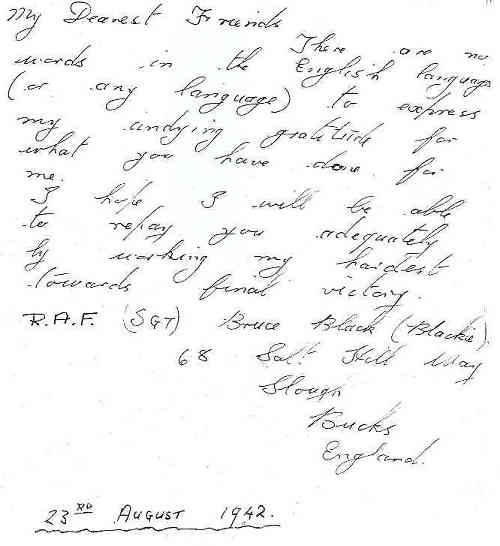 My Dearest Friends
There are no
words in the English language
(or any language) to express
my undying gratitude for
what you have done for
me.
I hope I will be able
to repay you adequately
by working my hardest
towards final victory.
R.A.F. (SGT) Bruce Black (Blackie)
68 Salt Hill Way
Slough
Bucks
England.
23RD AUGUST 1942.